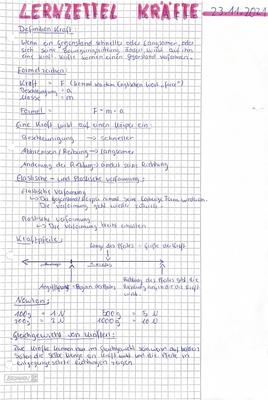 LERNZETTEL KRÄFTE 23.11.2021
Definition Kraft
Wenn ein Gegenstand schneller oder langsamer, oder
sich seine Bewegungsrichtung ändert wirkt auf ihn
eine Kraft. Kräfte können einen Gegenstand verformen.
Formelzeichen:
Kraft = F (kommt aus dem Englischen Wort „force“)
Beschleunigung = a
Masse = m
Formel = F = m · a
Eine Kraft wirkt auf einen Körper ein:
Beschleunigung → schneller
Abbremsen / Reibung → langsamer
Änderung der Richtung → ändert seine Richtung
Elastische - und Plastische Verformung:
Elastische Verformung
→ Der Gegenstand nimmt seine
Die Verformung geht wieder zurück
Plastische Verformung
→ Die Verformung bleibt erhalten
Kraftpfeile:
Länge des Pfeiles = Größe der Kraft
Richtung des Pfeiles gibt die
Richtung an, in die die Kraft
wirkt.
Newton:
100g = 1 N 500g = 5 N
200g = 2 N 1000g = 10 N
Gleichgewicht von Kräften:
Zwei Kräfte können nur im Gleichgewicht sein wenn auf beiden
Seiten die selbe Menge an Kraft wirkt und die Pfeile in
entgegengesetzte Richtungen zeigen.